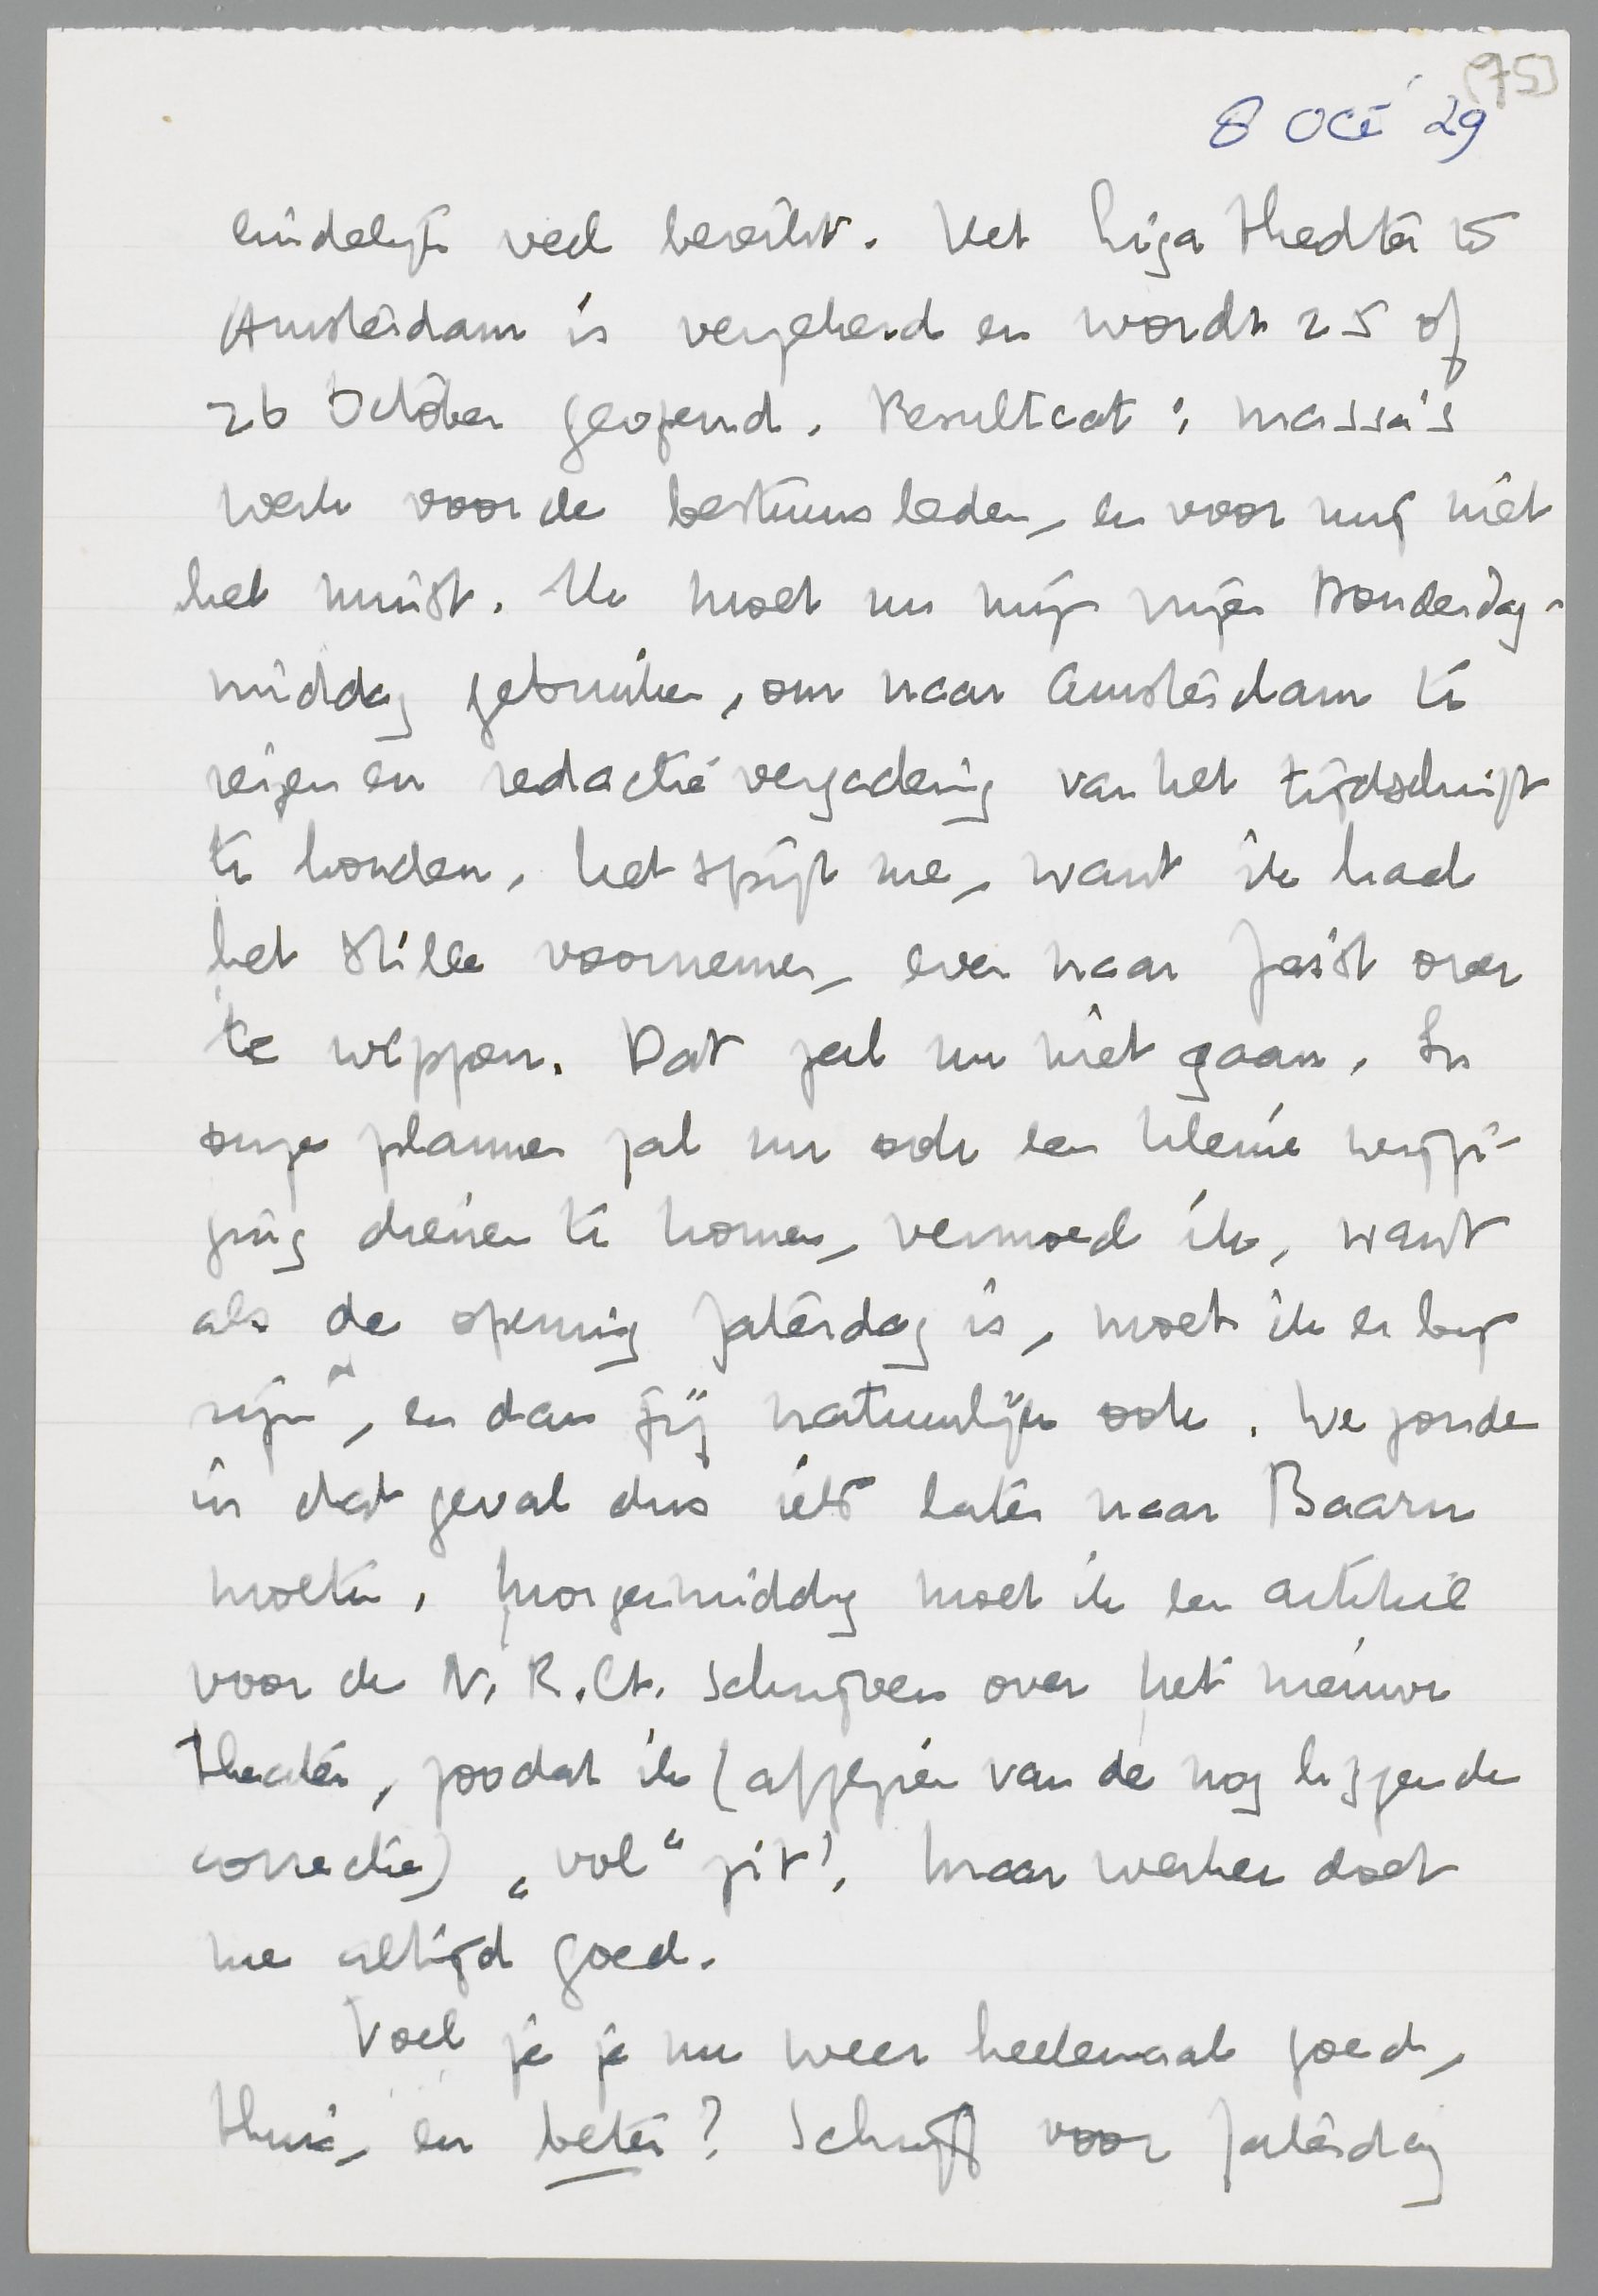 [75]
8 Oct '29
eindelijk veel bereikt. Het Liga Theater te
Amsterdam is verzekerd en wordt 25 of
26 October geopend. Resultaat: massa's
werk voor de bestuursleden, en voor mij niet
het minst. Ik moet nu mijn vrije Donderdag-
middag gebruiken, om naar Amsterdam te
reizen en redactievergadering van het tijdschrift
te houden. Het spijt me, want ik had
het stille voornemen, even naar Zeist over
te wippen. Dat zal nu niet gaan. In
onze plannen zal nu ook een kleine wijzi-
ging dienen te komen, vermoed ik, want
als de opening Zaterdag is, moet ik er bij
zijn, en dan jij natuurlijk ook. We zouden
in dat geval dus iets later naar Baarn
moeten. Morgenmiddag moet ik een artikel
voor de N.R.Ct. schrijven over het nieuwe
theater, zoodat ik (afgezien van de nog liggende
correctie) „vol" zit! Maar werken doet
me altijd goed.
Voel je je nu weer heelemaal goed,
thuis, en beter? Schrijf voor Zaterdag